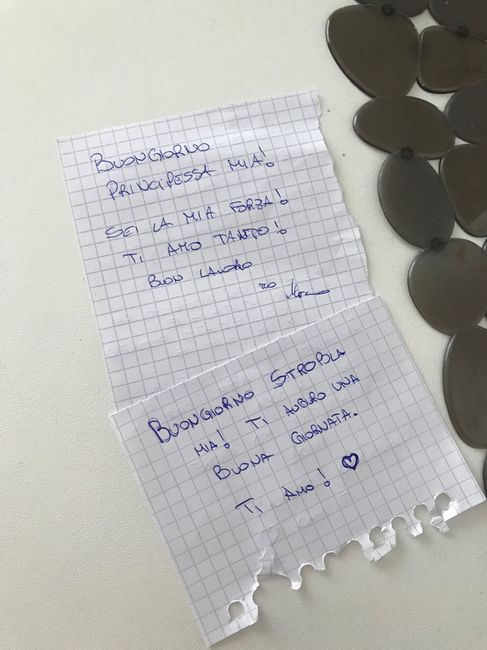 BUONGIORNO
PRINCIPESSA MIA!
SEI LA MIA FORZA!
TI AMO TANTO!
BUON LAVORO
BUONGIORNO STROBLA
MIA! TI AUGURO UNA
BUONA GIORNATA.
TI AMO! ♡